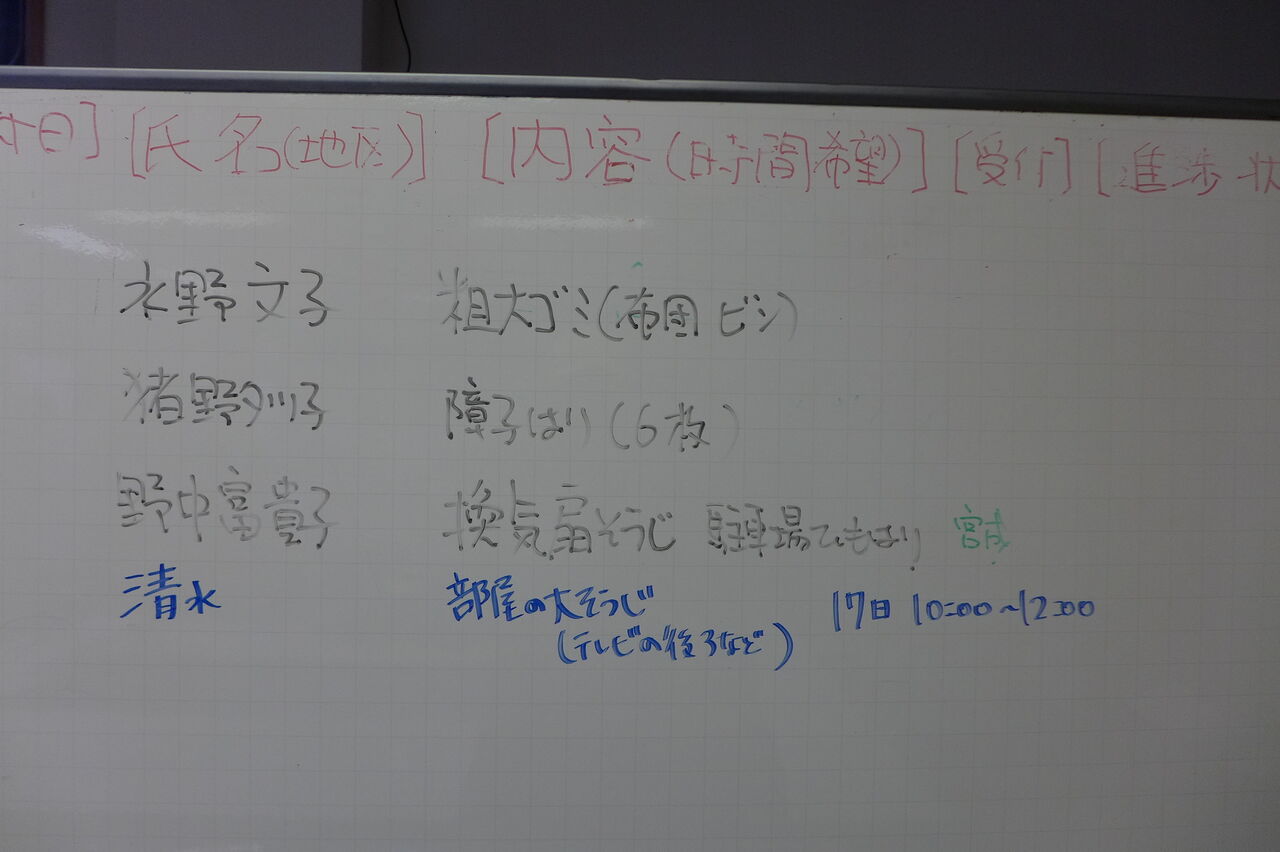 付日] [氏名(地区)] [内容(時間希望)] [受付] [進渉状
水野文子 粗大ゴミ(布団 ビン)
猪野夕川子 障子はり(6枚)
野中富貴子 換気扇そうじ 駐車場でもはり 宮成
清水 部屋の大そうじ 17日 10:00~12:00
(テレビの後ろなど)